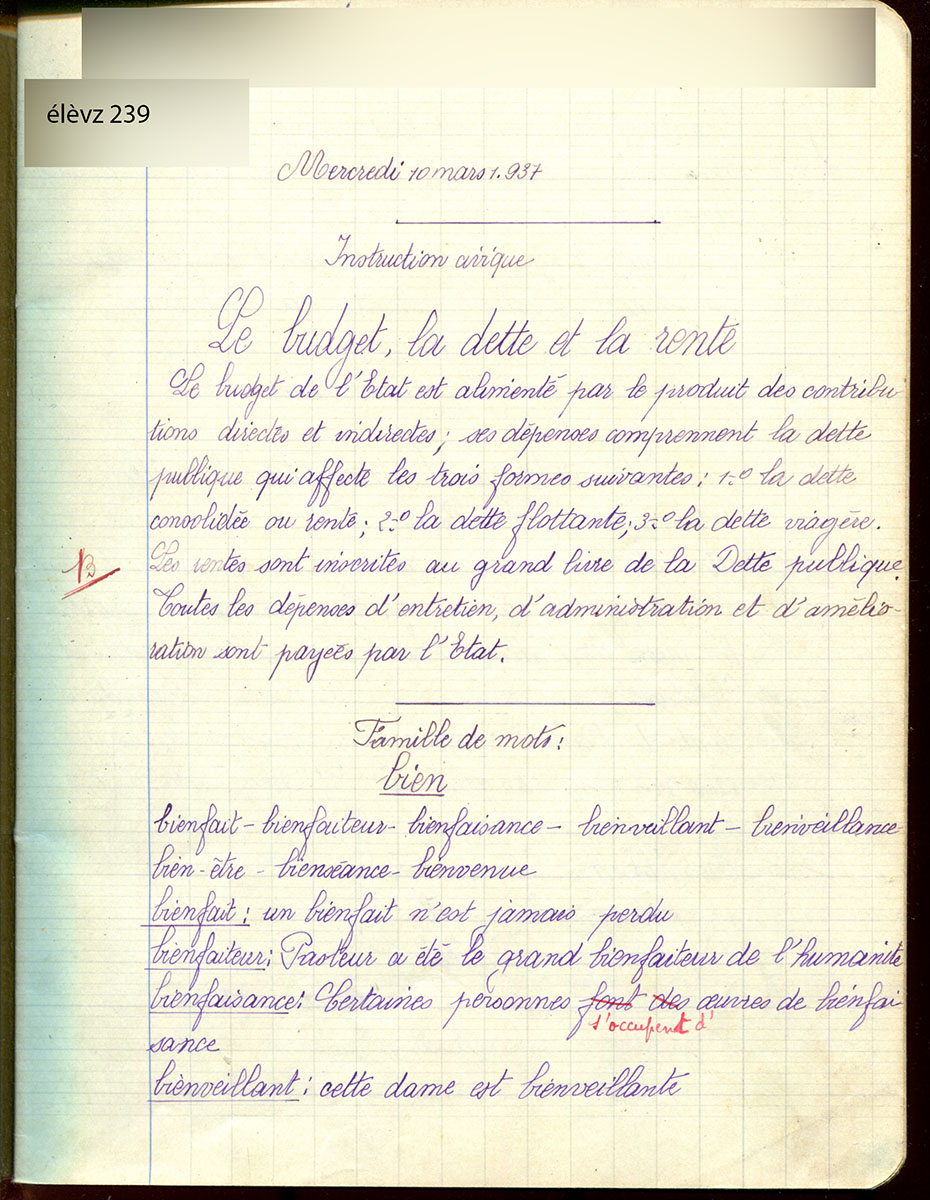 élèvz 239
Mercredi 10 mars 1.937
Instruction civique
Le budget, la dette et la rente
Le budget de l'Etat est alimenté par le produit des contribu-
tions directes et indirectes ; ses dépenses comprennent la dette
publique qui affecte les trois formes suivantes : 1-º la dette
consolidée ou rente ; 2-º la dette flottante ; 3-º la dette viagère.
Les rentes sont inscrites au grand livre de la Dette publique.
B
Toutes les dépenses d'entretien, d'administration et d'amélio-
ration sont payées par l'Etat.
Famille de mots :
bien
bienfait - bienfaiteur - bienfaisance - bienveillant - bienveillance
bien-être - bienséance - bienvenue
bienfait : un bienfait n'est jamais perdu
bienfaiteur : Pasteur a été le grand bienfaiteur de l'humanité
bienfaisance : Certaines personnes font des œuvres de bienfai
s'occupent d'
sance
bienveillant : cette dame est bienveillante